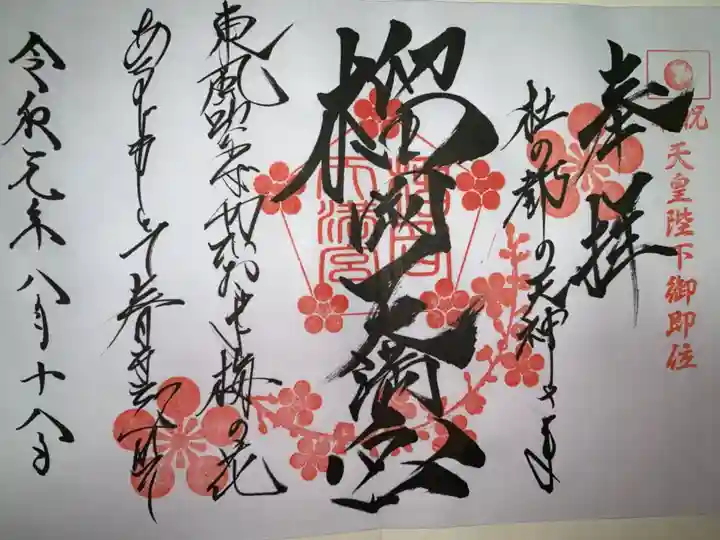 祝 天皇陛下御即位
奉拝
杜の都の天神さま
榴岡天満宮
榴岡天満宮
東風吹かば匂ひおこせよ梅の花
あるじなしとて春な忘れそ
令和元年八月十八日